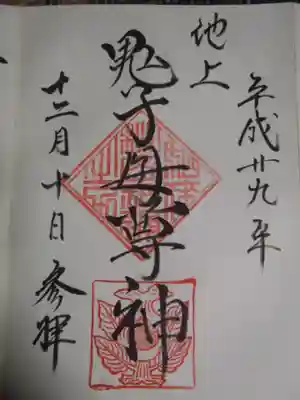 平成廿九年
地上
鬼子母尊神
十二月十日 参拝